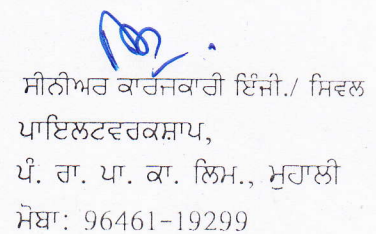 ਸੀਨੀਅਰ ਕਾਰਜਕਾਰੀ ਇੰਜੀ./ ਸਿਵਲ
ਪਾਇਲਟਵਰਕਸ਼ਾਪ,
ਪੰ. ਰਾ. ਪਾ. ਕਾ. ਲਿਮ., ਮੁਹਾਲੀ
ਮੋਬਾ: 96461-19299